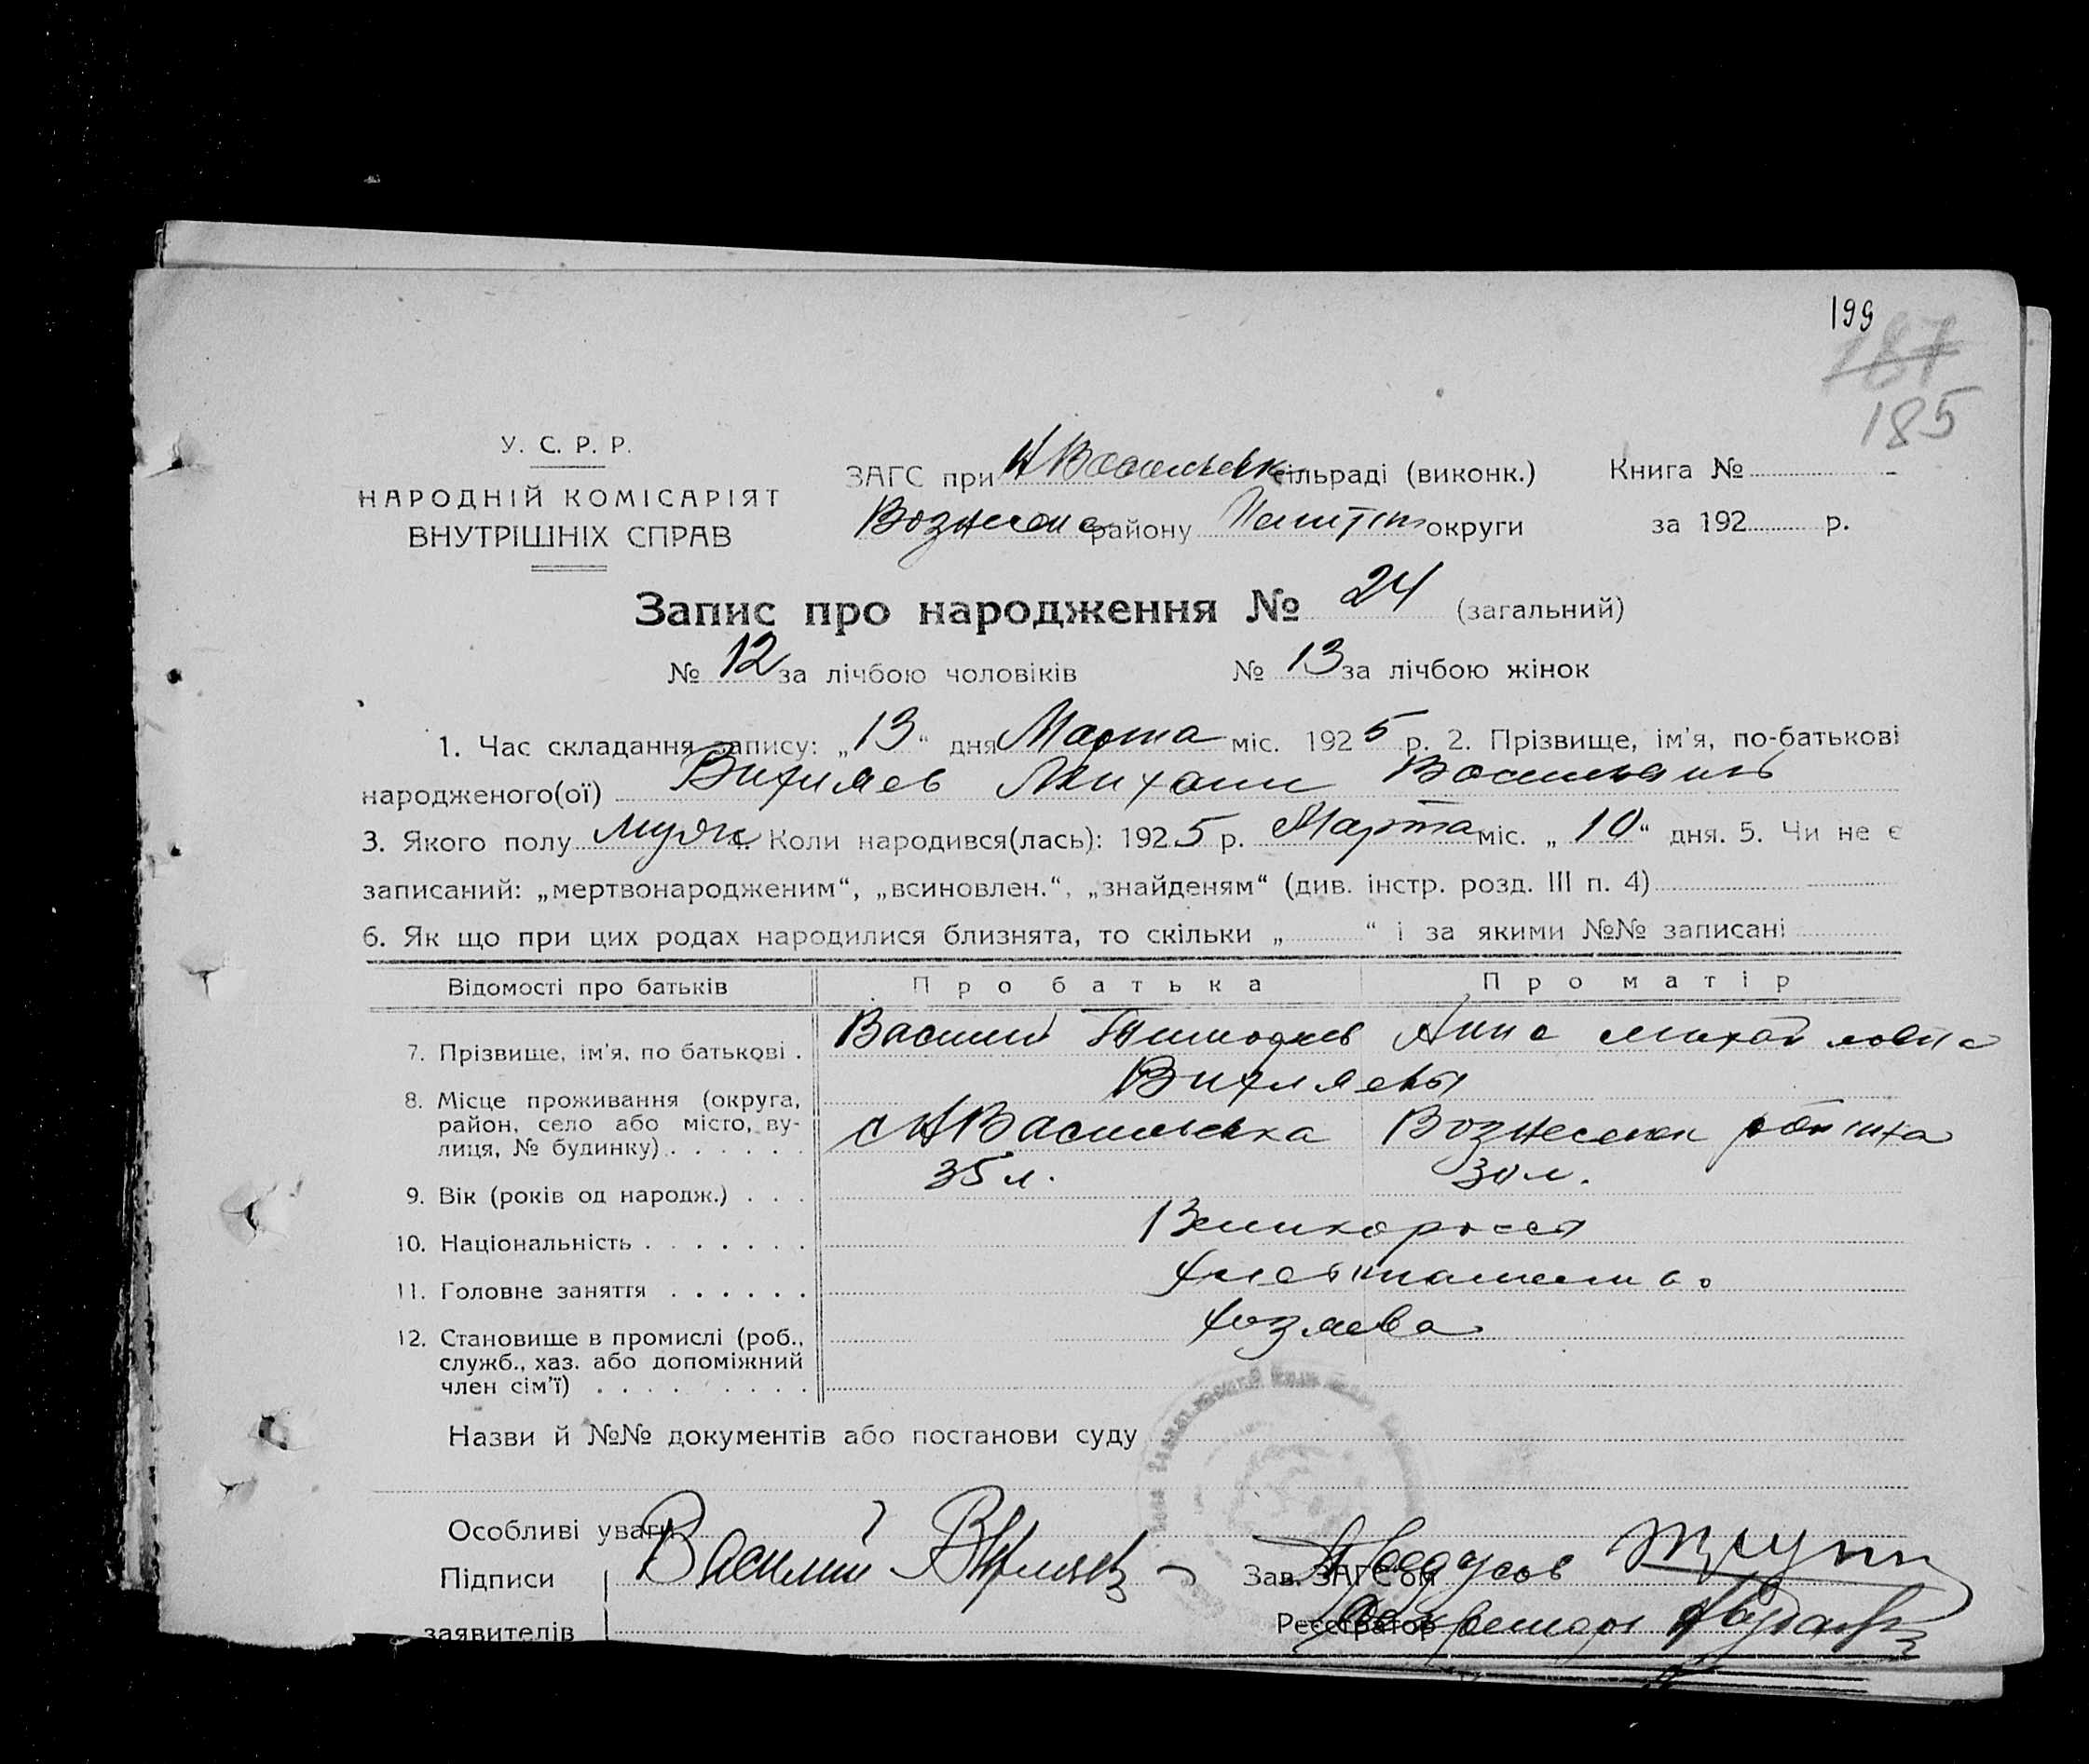 199
187
185
У. С. Р. Р.
НАРОДНІЙ КОМІСАРІЯТ
ВНУТРІШНІХ СПРАВ
ЗАГС при НВасильевк сільраді (виконк.) Книга №
Вознесенс району округи за 192 р.
Запис про народження № 24 (загальний)
№ 12 за лічбою чоловіків № 13 за лічбою жінок
1. Час складання запису: „13“ дня Марта міс. 1925 р. 2. Прізвище, ім'я, по-батькові
народженого(ої) Вихляев Михаил Васильевич
3. Якого полу Муж. Коли народився(лась): 1925 р. Марта міс. „10“ дня. 5. Чи не є
записаний: „мертвонародженим“, „всиновлен.“, „знайденям“ (див. інстр. розд. III п. 4)
6. Як що при цих родах народилися близнята, то скільки „ “ і за якими №№ записані
Відомості про батьків Про батька Про матір
7. Прізвище, ім'я, по батькові . Василий Анна Михайловна
Вихляевы
8. Місце проживання (округа,
район, село або місто, ву-
лиця, № будинку) . . . . . . с НВасильевка Вознесенск района
9. Вік (років од народж.) . . . 35 л. 30 л.
10. Національність . . . . . . . Великороссы
11. Головне заняття . . . . . . Хлебопашество
12. Становище в промислі (роб.,
служб., хаз. або допоміжний
член сім'ї) . . . . . . . . . Хозяева
Назви й №№ документів або постанови суду
Особливі уваги
Підписи Василий Вихляев Зав. ЗАГС'ом
заявителів Реєстратор Секретарь